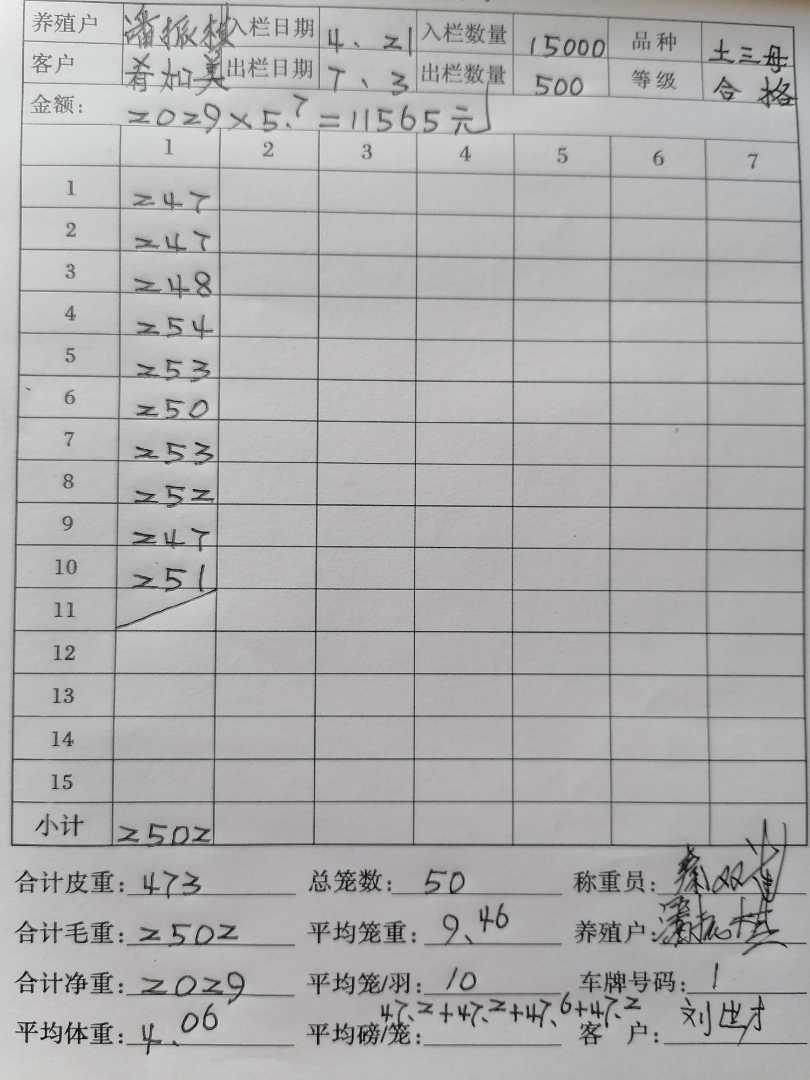 养殖户 潘振棋 入栏日期 4、21 入栏数量 15000 品种 土三母
客户 有加美 出栏日期 7、3 出栏数量 500 等级 合格
金额: 2029×5.7=11565元
1 2 3 4 5 6 7
1 247
2 247
3 248
4 254
5 253
6 250
7 253
8 252
9 247
10 251
11
12
13
14
15
小计 2502
合计皮重: 473 总笼数: 50 称重员: 秦双
合计毛重: 2502 平均笼重: 9、46 养殖户: 潘振棋
合计净重: 2029 平均笼/羽: 10 车牌号码: 1
平均体重: 4、06 平均磅/笼: 47.2+47.2+47.6+47.2 客户: 刘出才